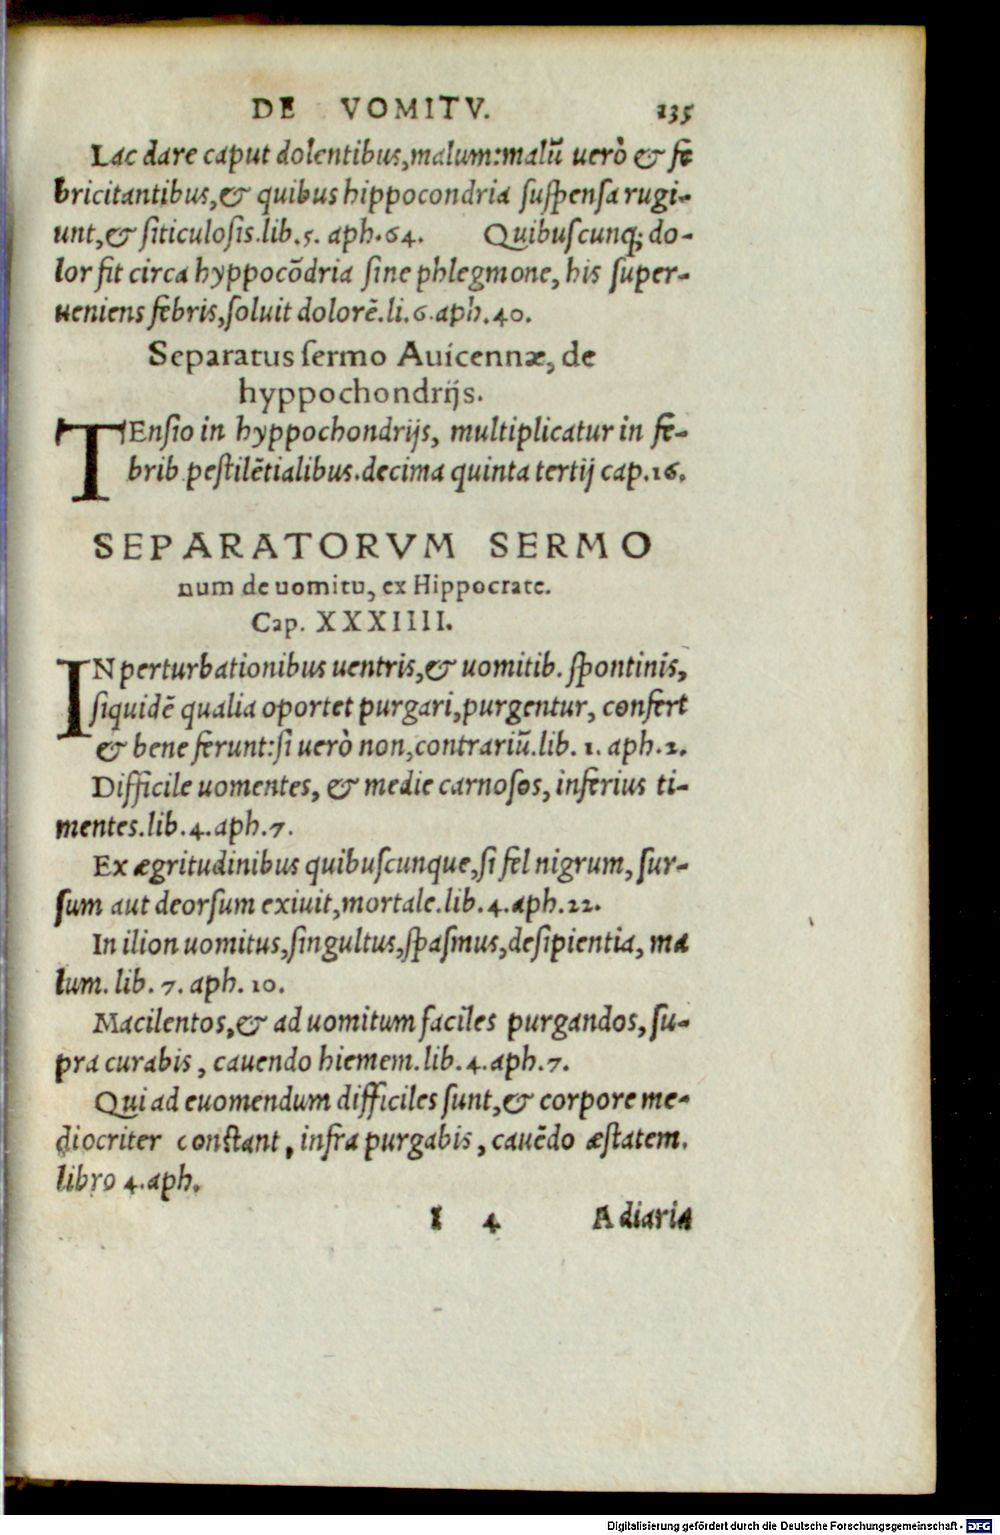 DE VOMITV. 135
Lac dare caput dolentibus,malum:malũ uerò & fe
bricitantibus,& quibus hippocondria suspensa rugi-
unt,& siticulosis.lib.5. aph.64. Quibuscunq; do-
lor fit circa hyppocõdria sine phlegmone, his super-
ueniens febris,soluit dolorẽ.li.6.aph.40.
Separatus sermo Auicennæ, de
hyppochondrijs.
TEnsio in hyppochondrijs, multiplicatur in fe-
brib.pestilẽtialibus.decima quinta tertij cap.16.
SEPARATORVM SERMO
num de uomitu, ex Hippocrate.
Cap. XXXIIII.
IN perturbationibus uentris,& uomitib. spontinis,
siquidẽ qualia oportet purgari,purgentur, confert
& bene ferunt:si uerò non,contrariũ.lib. 1. aph.2.
Difficile uomentes, & medie carnosos, inferius ti-
mentes.lib.4.aph.7.
Ex ægritudinibus quibuscunque,si fel nigrum, sur-
sum aut deorsum exiuit,mortale.lib.4.aph.22.
In ilion uomitus,singultus,spasmus,desipientia, ma
lum. lib. 7. aph. 10.
Macilentos,& ad uomitum faciles purgandos, su-
pra curabis, cauendo hiemem.lib.4.aph.7.
Qui ad euomendum difficiles sunt,& corpore me-
diocriter constant, infra purgabis, cauẽdo æstatem.
libro 4.aph.
I 4 A diaria
Digitalisierung gefördert durch die Deutsche Forschungsgemeinschaft - DFG